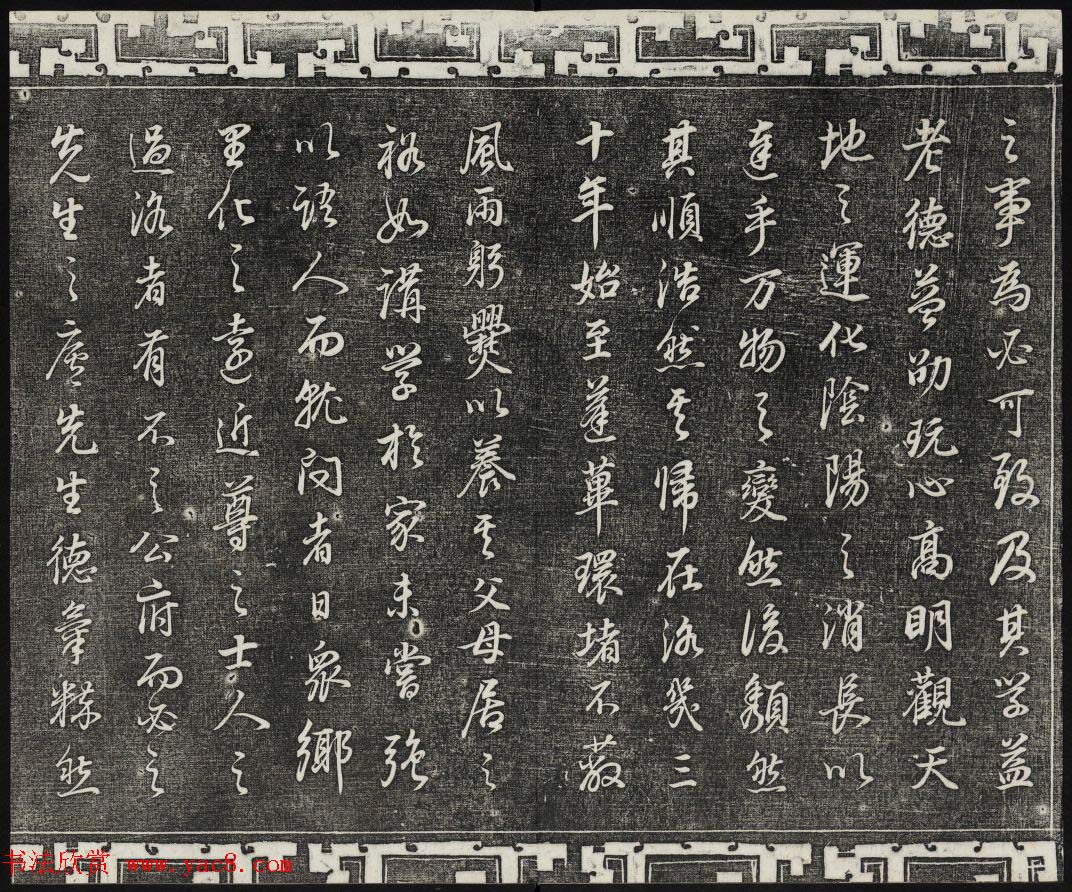 之事為必可致及其学益
老德益劭玩心高明觀天
地之運化陰陽之消長以
達乎万物之變然後頹然
其順浩然其歸在洛幾三
十年始至蓬蓽環堵不蔽
風雨躬爨以養其父母居之
裕如講学於家未嘗强
以語人而就问者日眾鄉
里化之遠近尊之士人之
過洛者有不之公府而必之
先生之廬先生德氣粹然
书法欣赏 www.yac8.com